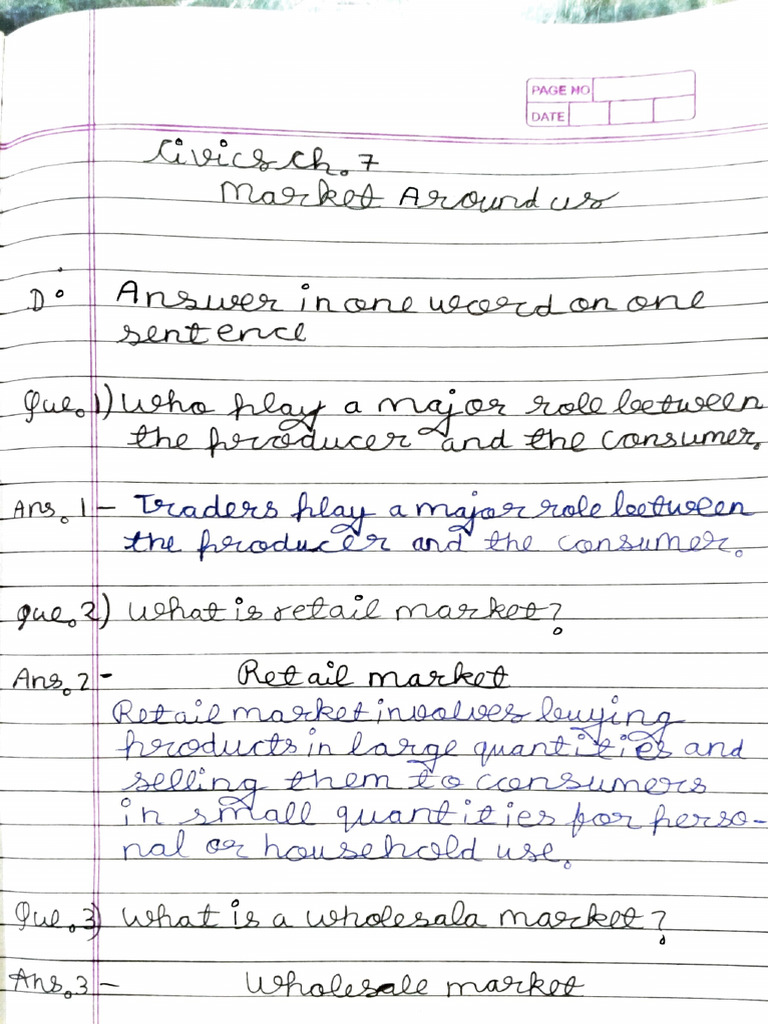 PAGE NO
DATE
Civics Ch. 7
Market Around us
D: Answer in one word on one
sentence
Que. 1) Who play a major role between
the producer and the consumer.
Ans. 1 - Traders play a major role between
the producer and the consumer.
que. 2) What is retail market?
Ans. 2 - Retail market
Retail market involves buying
products in large quantities and
selling them to consumers
in small quantities for perso-
nal or household use.
Que. 3) What is a wholesala market?
Ans. 3 - Wholesale market